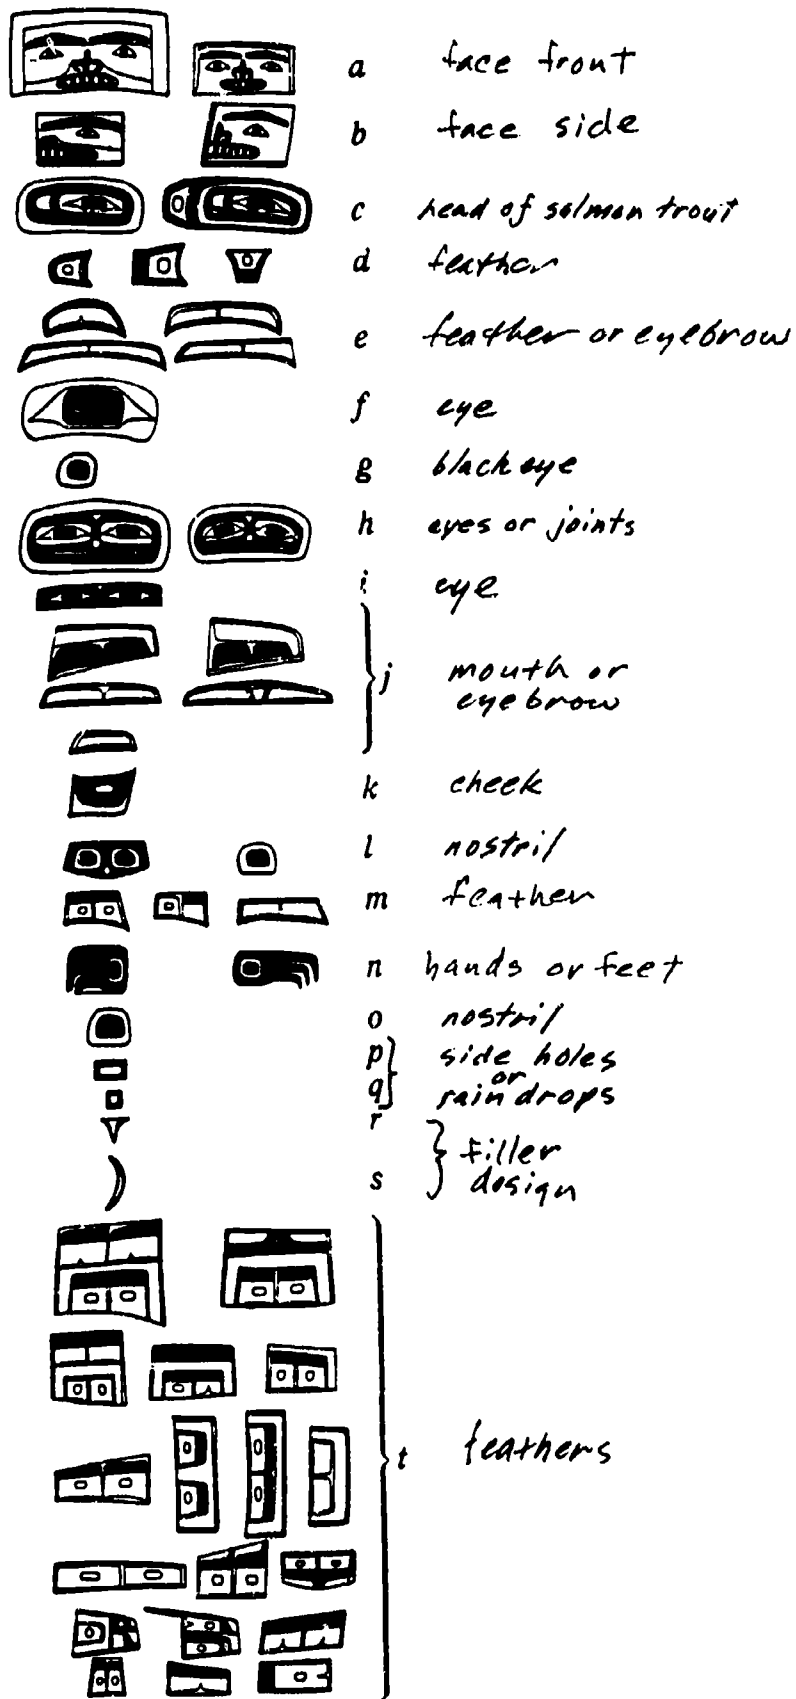 a face front
b face side
c head of salmon trout
d feather
e feather or eyebrow
f eye
g black eye
h eyes or joints
i eye
j mouth or
eyebrow
k cheek
l nostril
m feather
n hands or feet
o nostril
p side holes
or
q rain drops
r
filler
s design
t feathers